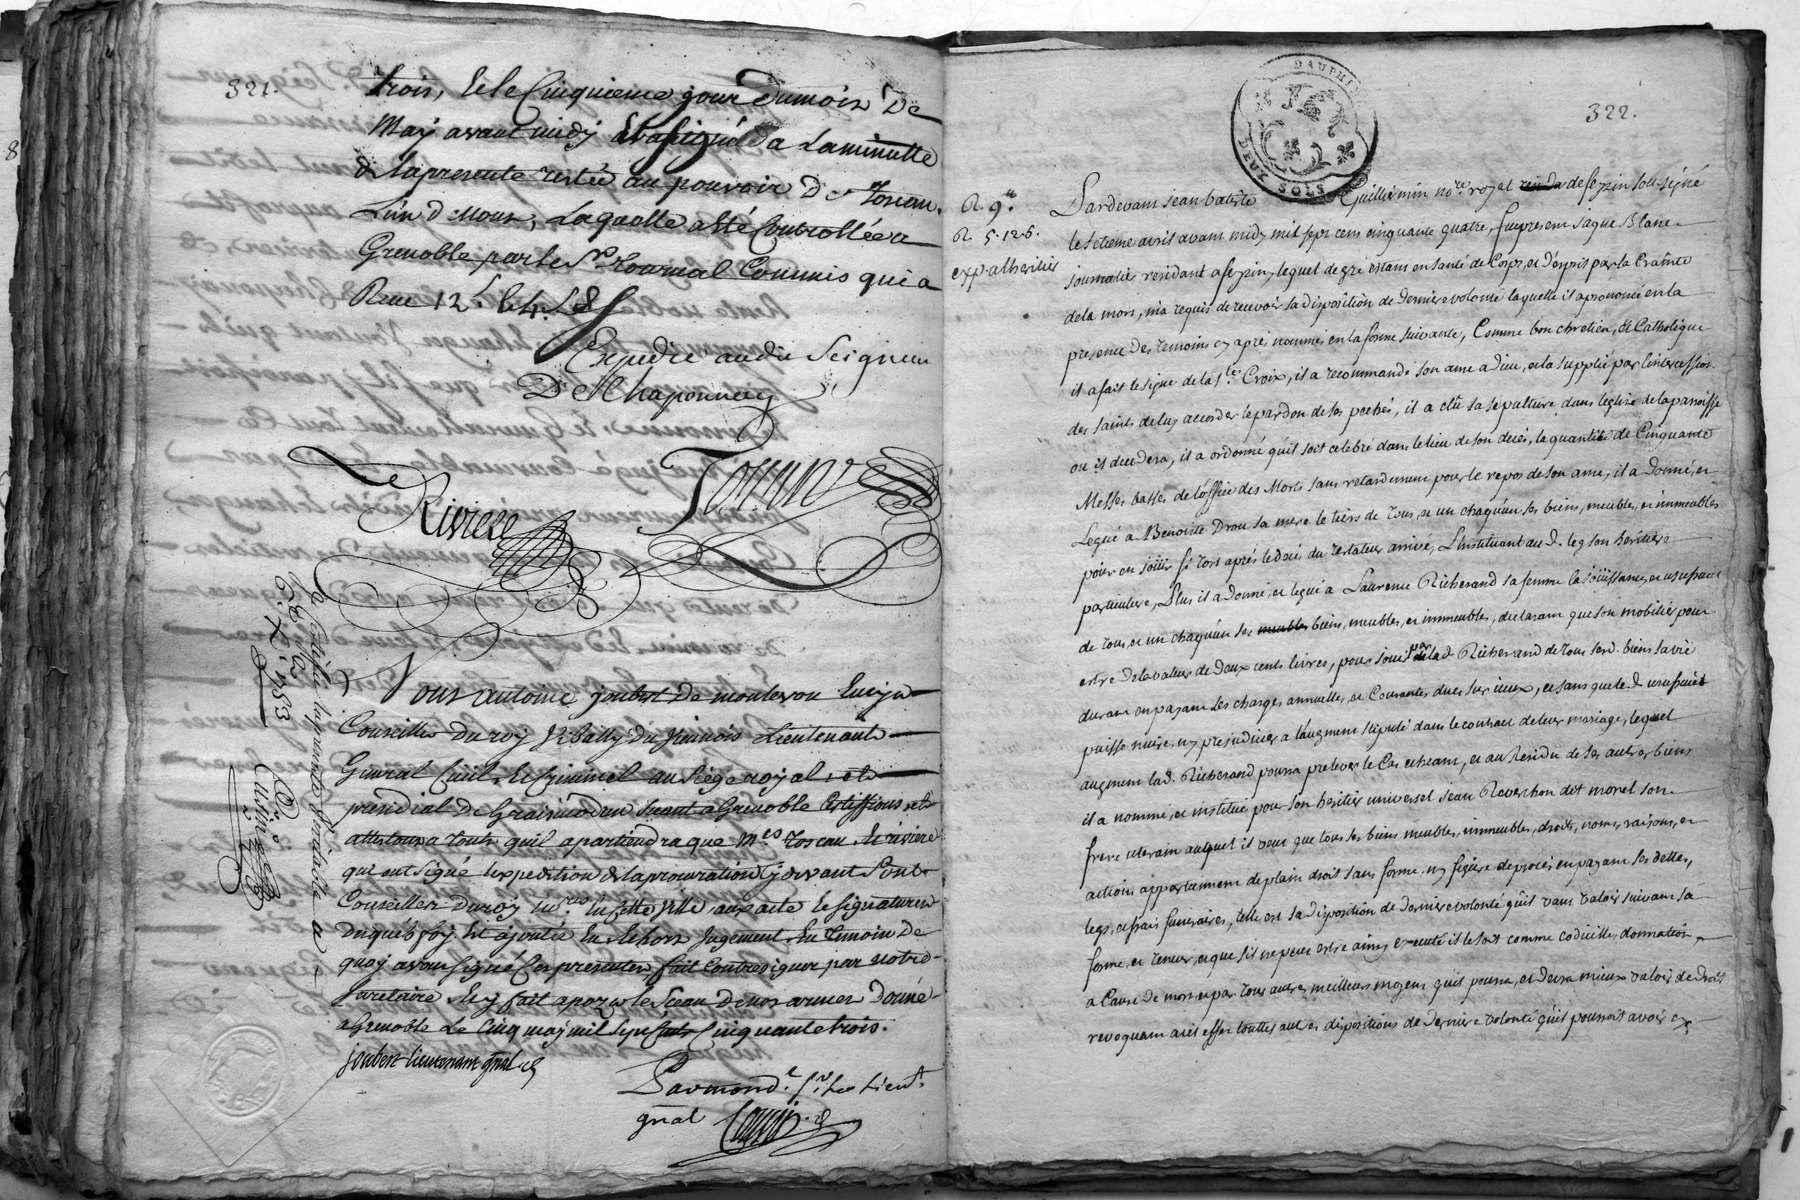 321.
trois, & le Cinquieme jour du mois De
May avant midy & a signé a la minutte
& la presente restée au pouvoir De Me Toscan
L'un d nous, Laquelle a été Controllée a
Grenoble par le Sr. Tournal Commis qui a
Receu 12 s. & 4.
Expedié audit Seigneur
De Chaponnay
Riviere
Toscan
Nous antoine joubert De montevou Ecuyer
Conseiller du roy Vibally du Lieutenant
General Civil & Criminel au Siege royal & 
presidial De Graisivodan Seant a Grenoble Certiffions &
attestons a tous qu'il apartiendra que Mes Toscan & riviere
qui ont Signé l'expedition de la procuration cy devant Sont
Conseiller du roy nores. En cette ville aux actes & Signatures
Desquels foy Est ajoutée En & hors Jugement En temoin De
quoy avons Signé Ces presentes fait Contresigner par notre
Secretaire & y fait aposer le Sceau De nos armes Donné
a Grenoble Le Cinq may mil sept cent Cinquante trois.
joubert lieutenant gnal
Par mond. Sr. Le Lieut.
gnal
DAUPHINE
DEUX SOLS
322.
R. 9
R. 5.12.6.
exp. a l'heritier
Pardevant Jean batiste Guillermin nore. royal de seyzin sous-signé
le setieme avril avant midy mil sept cent cinquante quatre, fut present Jaque Blanc
journalier residant a seyzin, lequel de gré estant en santé de Corps, et d'esprit par la Crainte
de la mort, m'a requis de recevoir sa disposition de derniere volonté laquelle il a prononcé en la
presence des temoins cy après nommés en la forme suivante, Comme bon chretien, & Catholique
il a fait le signe de la Ste. Croix, il a recommandé son ame a dieu, et la supplié par l'intercession
des saints de luy accorder le pardon de ses pechés, il a elu sa sepulture dans l'eglise de la paroisse
ou il decedera, il a ordonné qu'il soit celebré dans le lieu de son decés, la quantité de Cinquante
Messes basses de l'office des Morts sans retardement pour le repos de son ame, il a donné, et
Legué a Benoite Drou sa mere le tiers de tous, et un chaqu'un ses biens, meubles, et immeubles
pour en joüir si tost aprés le decés du testateur arrivé, L'instituant au d. leg son heritiere
particuliere, Plus il a donné, et legué a Laurence Richerand sa femme la joüissance, et usufruit
de tous, et un chaqu'un ses meubles biens, meubles, et immeubles, declarant que son mobilier peut
estre de la valeur de deux cents livres, pour jouir par la d. Richerand de tous sesd. biens sa vie
durant en payant les charges annuelles, et Courantes dues sur iceux, et sans que le d. usufruit
puisse nuire, ny prejudicier a l'augment stipulé dans le contract de leur mariage, lequel
augment lad. Richerand pourra prelever le Cas echeant, et au Residu de ses autres biens
il a nommé, et institué pour son heritier universel Jean Reverchon dit morel son
frere uterain auquel il veut que tous ses biens meubles, immeubles, droits, noms, raisons, et
actions appartiennent de plain droit sans forme, ny figure de procés en payant ses dettes,
legs, et frais funeraires, telle est sa disposition de derniere volonté qu'il veut valoir suivant sa
forme, et teneur, et que s'il ne peut estre ainsy executé il le soit comme codicille, donnation
a Cause de mort et par tous autres meilleurs moyens qu'il pourra, et devra mieux valoir de droit
revoquant a cet effet touttes autres dispositions de derniere volonté qu'il pourroit avoir cy